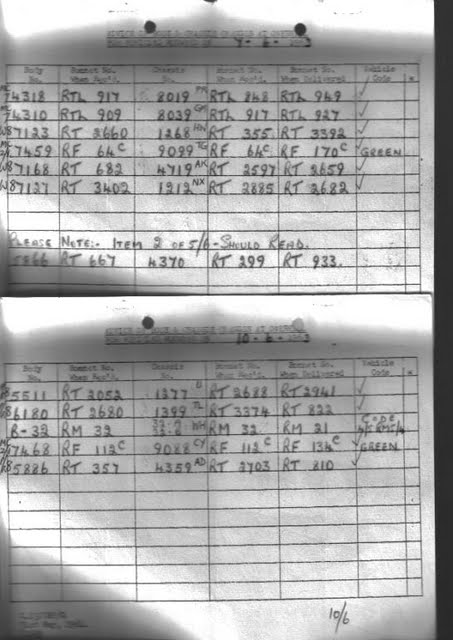 ADVICE OF BODY & CHASSIS CHANGES AT OVERHAUL
7-6-
Body No. Bonnet No. When Rec'd. Chassis No. Bonnet No. When Rec'd. Bonnet No. When Delivered Vehicle Code *
4318 RTL 917 8019 PM RTL 848 RTL 949 ✓
4310 RTL 909 8039 RTL 917 RTL 927 ✓
7123 RT 2660 1268 HN RT 355 RT 3392 ✓
7459 RF 64C 9099 TG RF 64C RF 170C GREEN
7168 RT 682 4719 AK RT 2597 RT 2659 ✓
7127 RT 3402 1212 NX RT 2885 RT 2682 ✓
PLEASE NOTE:- ITEM 2 OF 5/6 - SHOULD READ.
5866 RT 667 4370 RT 299 RT 933.
ADVICE OF BODY & CHASSIS CHANGES AT OVERHAUL
10-6-
Body No. Bonnet No. When Rec'd. Chassis No. Bonnet No. When Rec'd. Bonnet No. When Delivered Vehicle Code *
5511 RT 2052 1277 RT 2688 RT 2941 ✓
6180 RT 2680 1399 TL RT 3374 RT 822 ✓
R-32 RM 32 WH RM 32 RM 21 CODE
7468 RF 112C 9088 CY RF 112C RF 134C GREEN
5886 RT 357 4359 AD RT 2703 RT 810 ✓
10/6